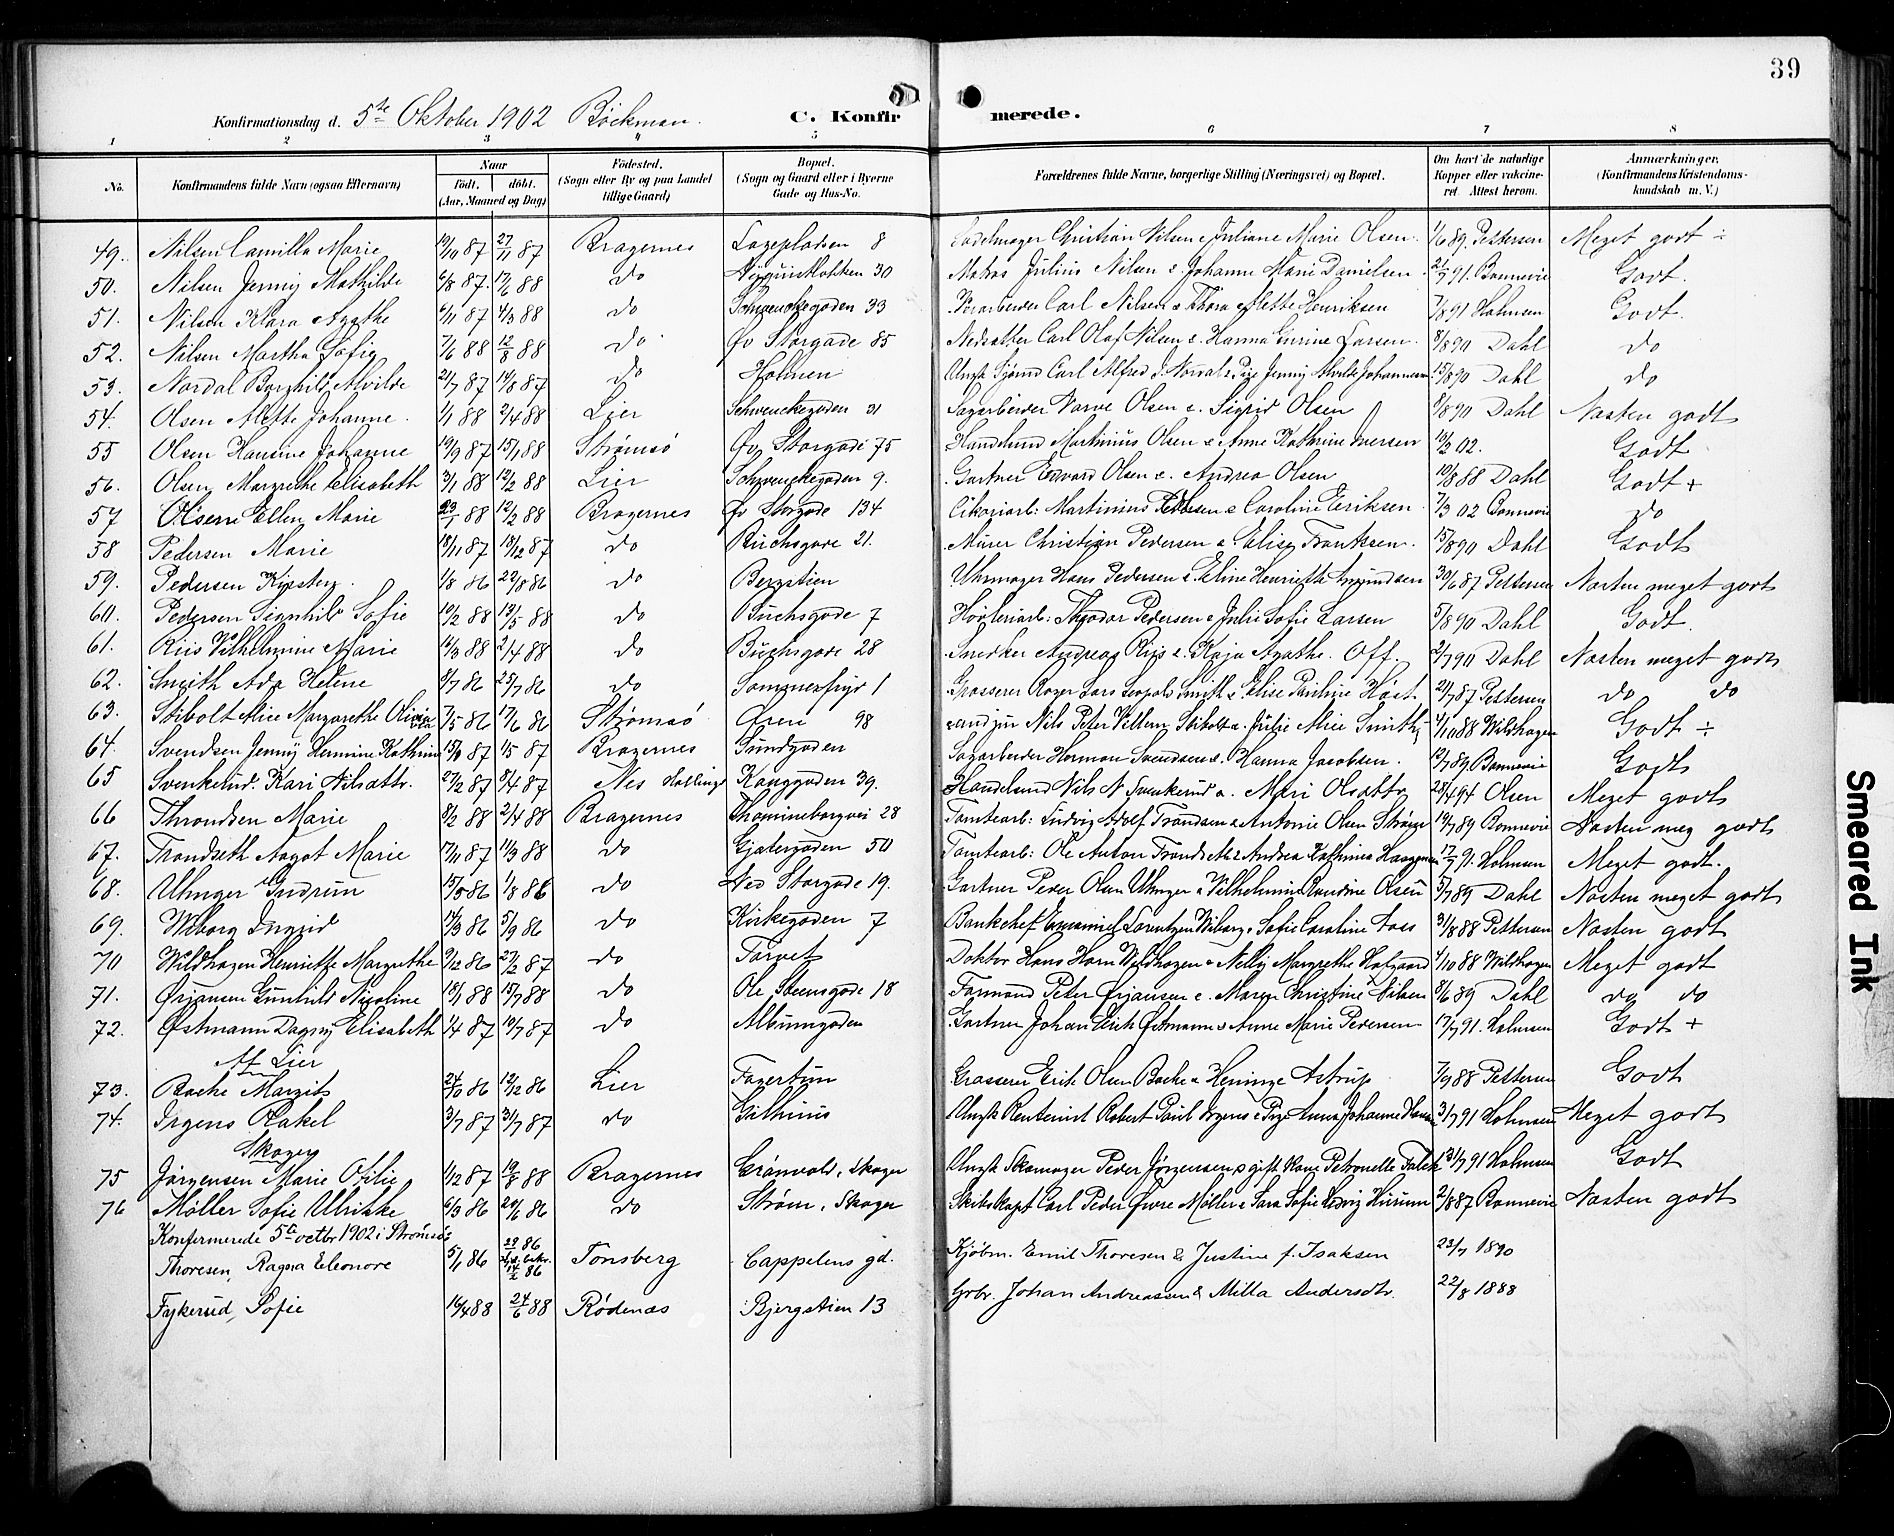 39
Konfirmationsdag d. 5te Oktober 1902 Böckman. C. Konfirmerede.
1 2 3 4 5 6 7 8
No. Konfirmandens fulde Navn (ogsaa Efternavn) Naar født. døbt. (Aar, Maaned og Dag) Fødested. (Sogn eller By og paa Landet tillige Gaard) Bopæl. (Sogn og Gaard eller i Byerne Gade og Hus-No. Forældrenes fulde Navne, borgerlige Stilling (Næringsvei) og Bopæl. Om havt de naturlige Kopper eller vakcineret. Attest herom. Anmærkninger. (Konfirmandens Kristendomskundskab m. V.)
49. Nilsen Camilla Marie 19/10 87 27/11 87 Bragernes Løgepladsen 8 Sadelmager Christian Nilsen & Juliane Marie Olsen. 1/6 89. Pettersen Meget godt ÷
50. Nilsen Jenny Mathilde 6/8 87. 17/6 88 do 30 Matros Julius Nilsen & Johanne Marie Danielsen 21/7 91. Bonnevie Godt.
51. Nilsen Klara Agathe 6/11 87 4/3 88 do Schwenckegaden 33 Carl Nilsen & Thora Alette Henriksen 7/8 91 Holmsen Godt.
52. Nilsen Martha Sofie 7/6 88 12/8 88 do Øv Storgade 85 Carl Olaf Nilsen & Hanna Larsen. 8/8 90 Dahl do
53. Nordal Borghild Alvilde 21/7 87 14/8 87 do Holmen Ungk Sjømd Carl Alfred J. Nordal & Pige Jenny Johannesen 15/8 90 Dahl do
54. Olsen Alette Johanne. 1/1 88 2/4 88 Lier Schwenckegaden 31 Sagarbeider Olsen & Sigrid Olsen 8/8 90 Dahl Næsten godt
55 Olsen Hansine Johanne 19/9 87 15/1 88 Strømsö Øv. Storgade 75 Handelsmd Martinius Olsen & Anne Kathrine Iversen 10/2 02. Godt
56. Olsen Margrethe Elisabeth 3/1 88 12/2 88 Lier Schwenckegaden 9. Gartner Edvard Olsen & Andrea Olsen 10/8 88 Dahl Godt +
57 Olsen Ellen Marie 23/1 88 12/2 88 Bragernes Øv Storgade 134 Cikoriarb. Martinius & Caroline Eriksen 7/3 02 Bonnevie do
58 Pedersen Marie 18/11 87 18/12 87 do Buchsgade 21. Murer Christian Pedersen & Elise Frantzsen. 15/8 90 Dahl Godt
59. Pedersen Kirsten. 1/8 86 22/8 86 do Bergstien Uhrmager Hans Pedersen & Eline Henriette Amundsen 30/6 87 Pettersen Næsten meget godt
60. Pedersen Signhild Sofie 10/2 88 13/5 88 do Buchsgade 7 Høvleriarb: Theodor Pedersen & Julie Sofie Larsen 5/8 90 Dahl Godt.
61. Riis Vilhelmine Marie 14/3 88 2/4 88 do Buchsgade 28 Snedker Andreas Riis & Kaja Agathe Off. 2/7 90 Dahl Næsten meget godt
62. Smith Ada Helene 8/7 86 25/7 86 do Sommerfryd 1 Grosserer Roger Lars Leopold Smith & Elise Pauline Høst 21/7 87 Pettersen do do
63. Stibolt Alice Margarethe Olivia 7/5 86 17/6 86 Strømsö Øren 98 cand jur Nils Peter Vilhelm Stibolt & Julie Alice Smith 4/10 88 Wildhagen Godt ÷
64. Svendsen Jenny Hermine Kathrine 87 1/5 87 Bragernes Sundgaden Sagarbeider Herman Svendsen & Hanna Jacobsen. 12/7 89. Bonnevie Godt
65 Svenkerud. Kari Nilsdttr. 27/2 87 87 Nes Hallingd Konggaden 39. Handelsmd Nils N Svenkerud & Mari Olsdttr 28/4 94 Olsen Meget godt
66 Throndsen Marie 8/2 88 2/4 88 Bragernes 28 Tomtearb: Ludvig Adolf Trondsen & Antonie Olsen 19/7 89 Bonnevie Næsten meg godt
67. Trondseth Aagot Marie 17/11 87 11/3 88 do Gjetergaden 50 Tomtearb: Ole Anton Trondseth & Andrea 17/7 91. Holmsen Meget godt.
68. Uhnger Gudrun 15/5 86 1/8 86 do Ned Storgade 19. Gartner Peder Olsen Uhnger & Vilhelmine Olsen 5/7 89 Dahl Næsten meget godt
69. Wiborg Ingrid 13/3 86 5/9 86 do Kirkegaden 7 Bankchef Emanuel Lorentzen Wiborg & Sofie Caroline Aass 31/8 88 Pettersen Næsten godt
70 Wildhagen Henriette Margrethe 9/12 86 27/2 87 do Torvet Doktor Hans Horn Wildhagen & Nelly Margrethe Hofgaard 4/10 88 Wildhagen Meget godt
71. Ørjansen Gunhild Nicoline 18/1 88 15/7 88 do Ole Steensgade 18 Formand Peter Ørjansen & Maren Christine Nilsen 8/6 89 Dahl do do
72. Østmann Dagny Elisabeth 1/4 87 10/7 87 do Albumgaden Gartner Johan Erik Østmann & Anne Marie Pedersen 17/7 91. Holmsen Godt +
Af Lier
73. Bache Margit 24/10 86 12/12 86 Lier Fagertun Grosserer Erik Olsen Bache & Henninge Astrup 7/9 88 Pettersen Godt
74. Irgens Rakel 3/7 87 31/7 87 do Gilhuus Ungk Rentenist Robert Paul Irgens & Pige Anna Johanne 3/7 91 Holmsen Meget godt
Skoger
75 Jørgensen Marie Otilie 1/12 87 19/8 88 Bragernes Grönvold, Skoger Ungk Skomager Peder Jørgensen & gift Kone Petronelle Falck 31/7 91 Holmsen Godt
76 Møller Sofie Ulrikke 6/3 86 20/6 86 do Strøm, Skoger Skibskapt Carl Peder Øvre Møller & Sara Sofie Hedvig Hurum 2/8 87 Bonnevie Næsten godt
Konfermerede 5te octbr 1902 i Strømsö:
Thoresen, Ragna Eleonore 5/1 86 23/1 86 86 Tønsberg Cappelens gd. Kjøbm. Emil Thoresen & Justine f. Isaksen 23/7 1890
Fykerud, Sofie 16/4 88 24/6 88 Rødenæs Bjergstien 13 Grbr. Johan Andreassen & Milla Andersdtr. 22/8 1888
Smeared Ink